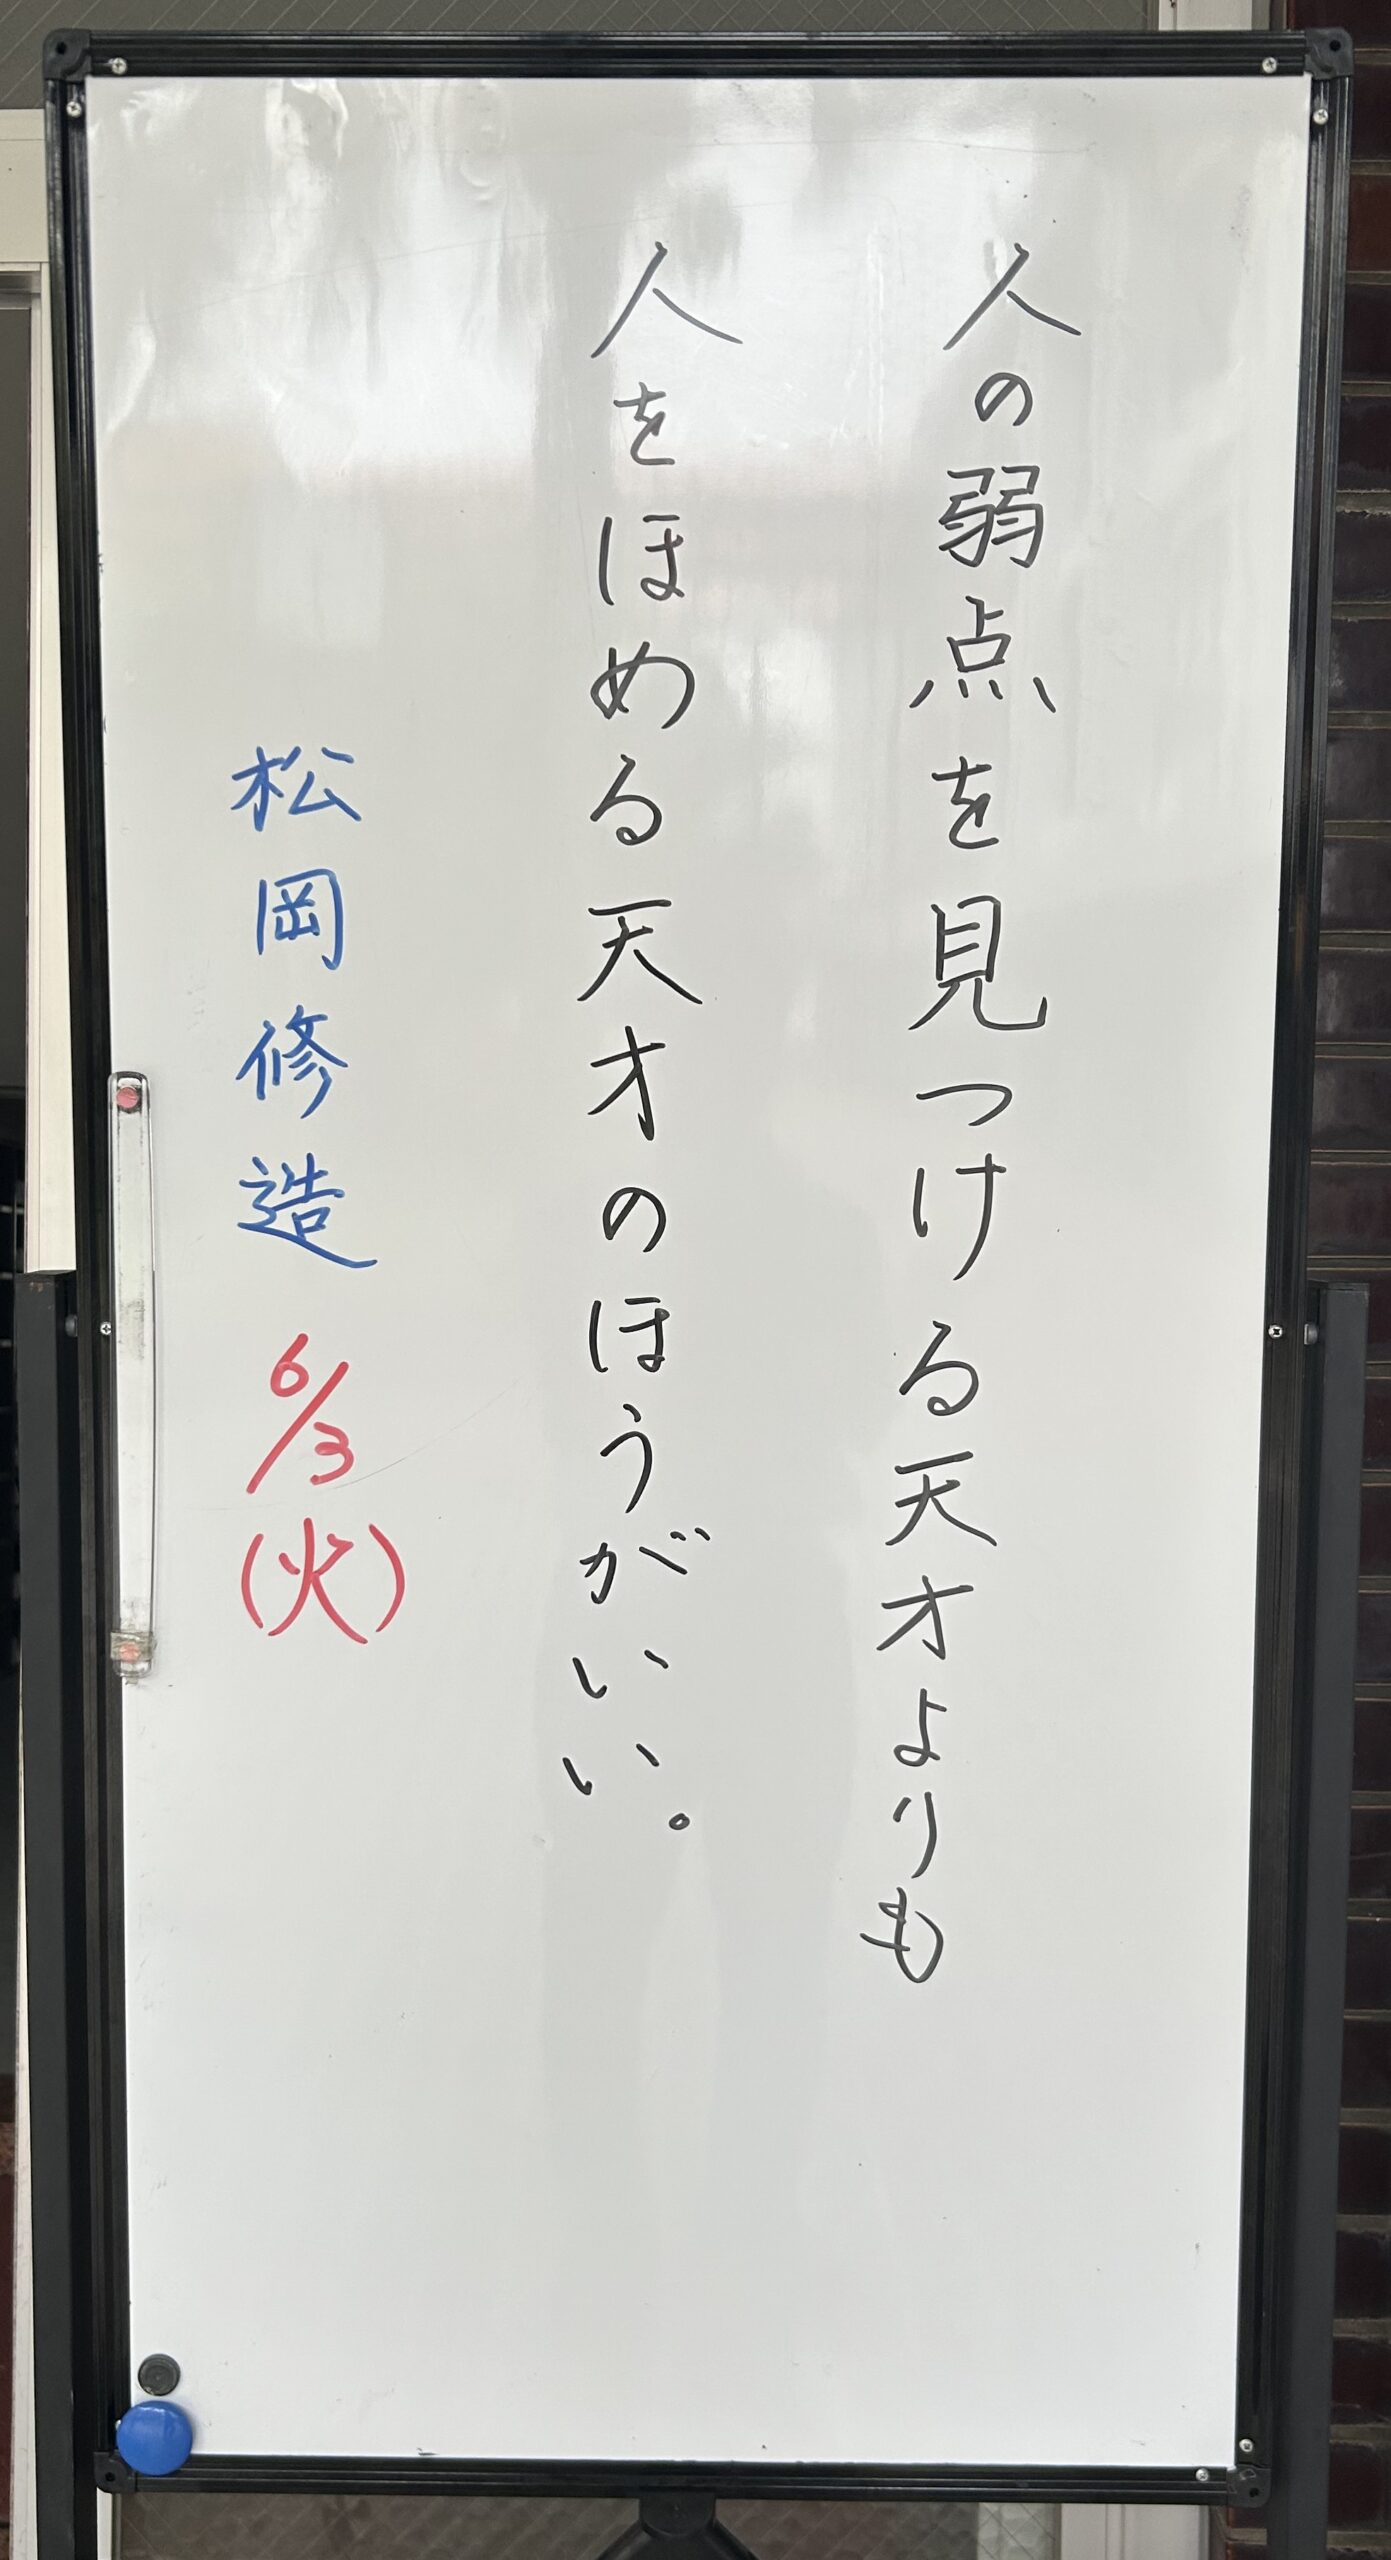 人の弱点を見つける天才よりも
人をほめる天才のほうがいい。
松岡修造 6/3(火)